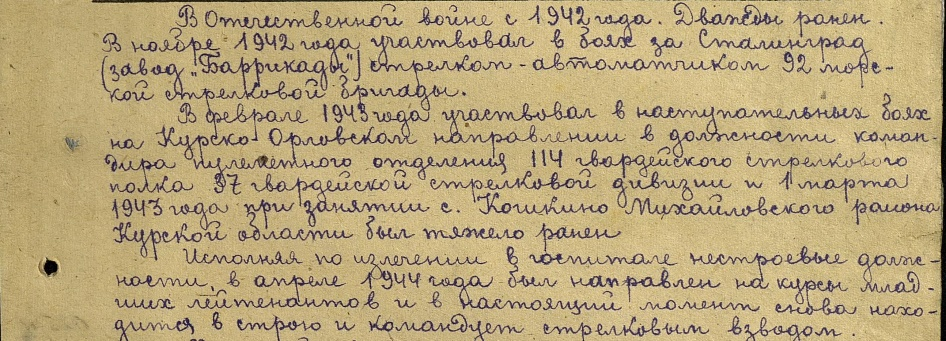 В Отечественной войне с 1942 года. Дважды ранен.
В ноябре 1942 года участвовал в боях за Сталинград
(завод „Баррикады") стрелком-автоматчиком 92 морс-
кой стрелковой бригады.
В феврале 1943 года участвовал в наступательных боях
на Курско-Орловском направлении в должности коман-
дира пулеметного отделения 114 гвардейского стрелкового
полка 37 гвардейской стрелковой дивизии и 1 марта
1943 года при занятии с. Кошкино Михайловского района
Курской области был тяжело ранен
Исполняя по излечении в госпитале нестроевые долж-
ности, в апреле 1944 года был направлен на курсы млад-
ших лейтенантов и в настоящий момент снова нахо-
дится в строю и командует стрелковым взводом.